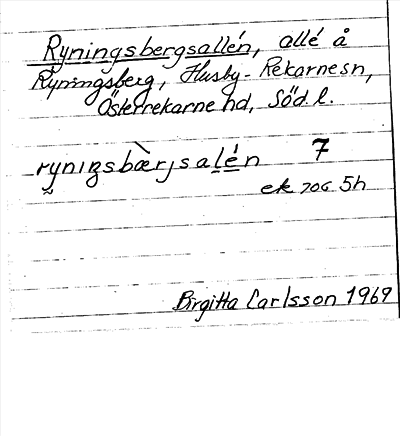 Ryningsbergsallén, allé å
Ryningsberg, Husby-Rekarnesn,
Österrekarne hd, Söd. l.
ryniŋsbærjsalén 7
ek 706 5h
Birgitta Carlsson 1969